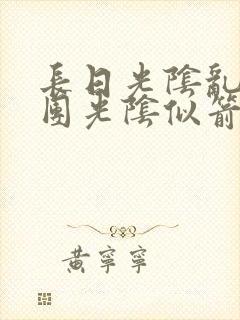 長日光陰亂
團光陰似箭
黃寧寧